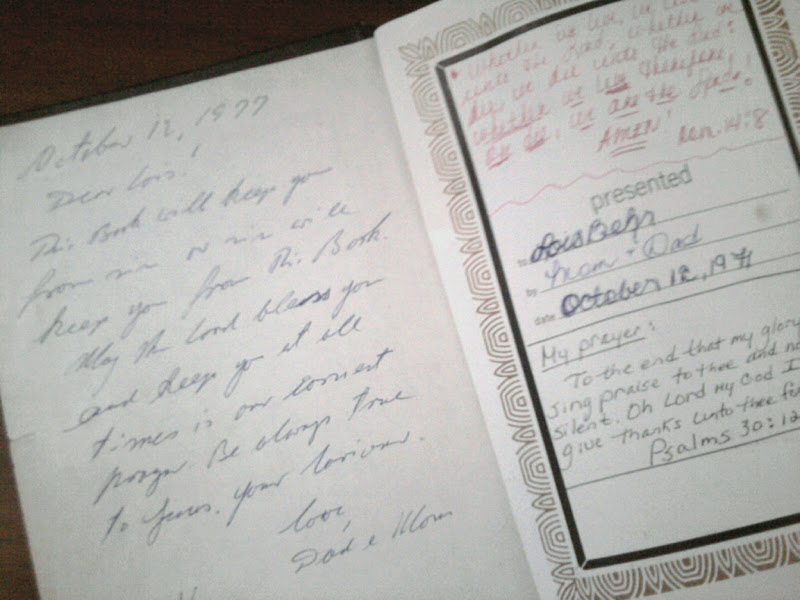 October 12, 1977
Dear Lois,!
This Book will keep you
from sin or sin will
keep you from this Book.
May the Lord bless you
and keep you at all
times is our earnest
prayer. Be always true
to Jesus, your Saviour.
love,
Dad & Mom
Whether we live, we live
unto the Lord; whether we
die, we die unto the Lord:
whether we live therefore,
or die, we are the Lord's!
AMEN!
Rom. 14:8
presented
to Lois Behr
by Mom & Dad
date October 12, 1977
My prayer:
To the end that my glory
sing praise to thee and no
silent. Oh Lord My God I
give thanks unto thee for
Psalms 30:12